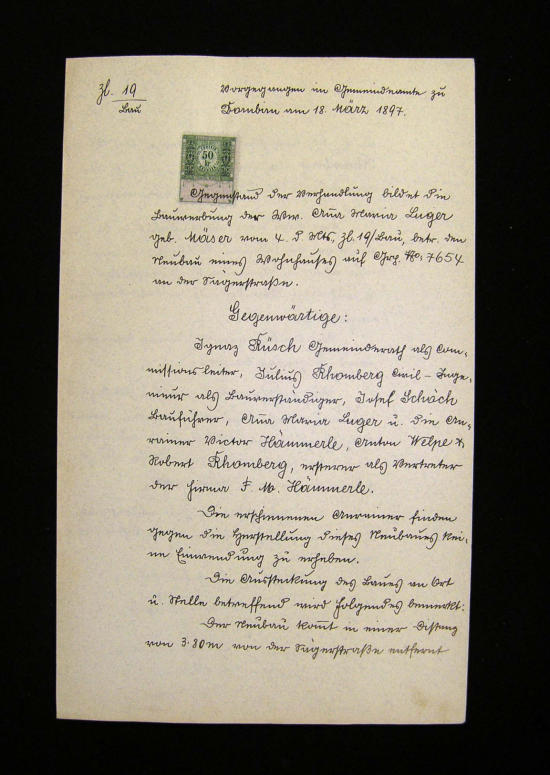 Zl. 19
Bau
Vorgegangen im Gemeindeamte zu
Dornbirn am 18. März 1897.
50
kr
Gegenstand der Verhandlung bildet die
Bauwerbung der Ww. Aña Maria Luger
geb. Mäser vom 4. d. Mts, Zl. 19/Bau, betr. den
Neubau eines Wohnhauses auf Grp. No: 7654
an der Sägerstraße.
Gegenwärtige:
Ignaz Rüsch Gemeinderath als Com-
missionsleiter, Julius Rhomberg Civil-Inge-
nieur als Bauverständiger, Josef Schöch
Bauführer, Aña Maria Luger u. die An-
rainer Victor Hämmerle, Anton Welpe &
Robert Rhomberg, ersterer als Vertreter
der Firma F. M. Hämmerle.
Die erschienenen Anrainer finden
gegen die Herstellung dieses Neubaues kei-
ne Einwendung zu erheben.
Die Aussteckung des Baues an Ort
u. Stelle betreffend wird folgendes bemerkt:
Der Neubau kom̃t in einer Distanz
von 3·80m von der Sägerstraße entfernt